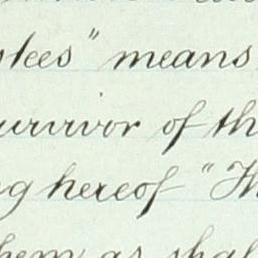 stees" means
urvivor of th
ng hereof "Th
hem as shal